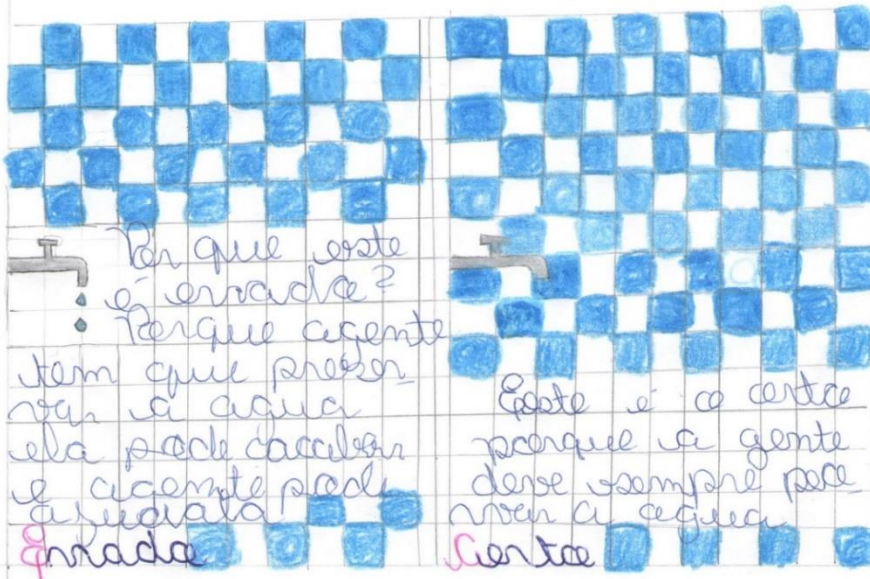 Por que este
é errado?
Porque agente
tem que preser-
var a agua
ela pode acabar
e agente pode
Errado
Este é o certo
porque a gente
deve sempre
var a agua
Certo